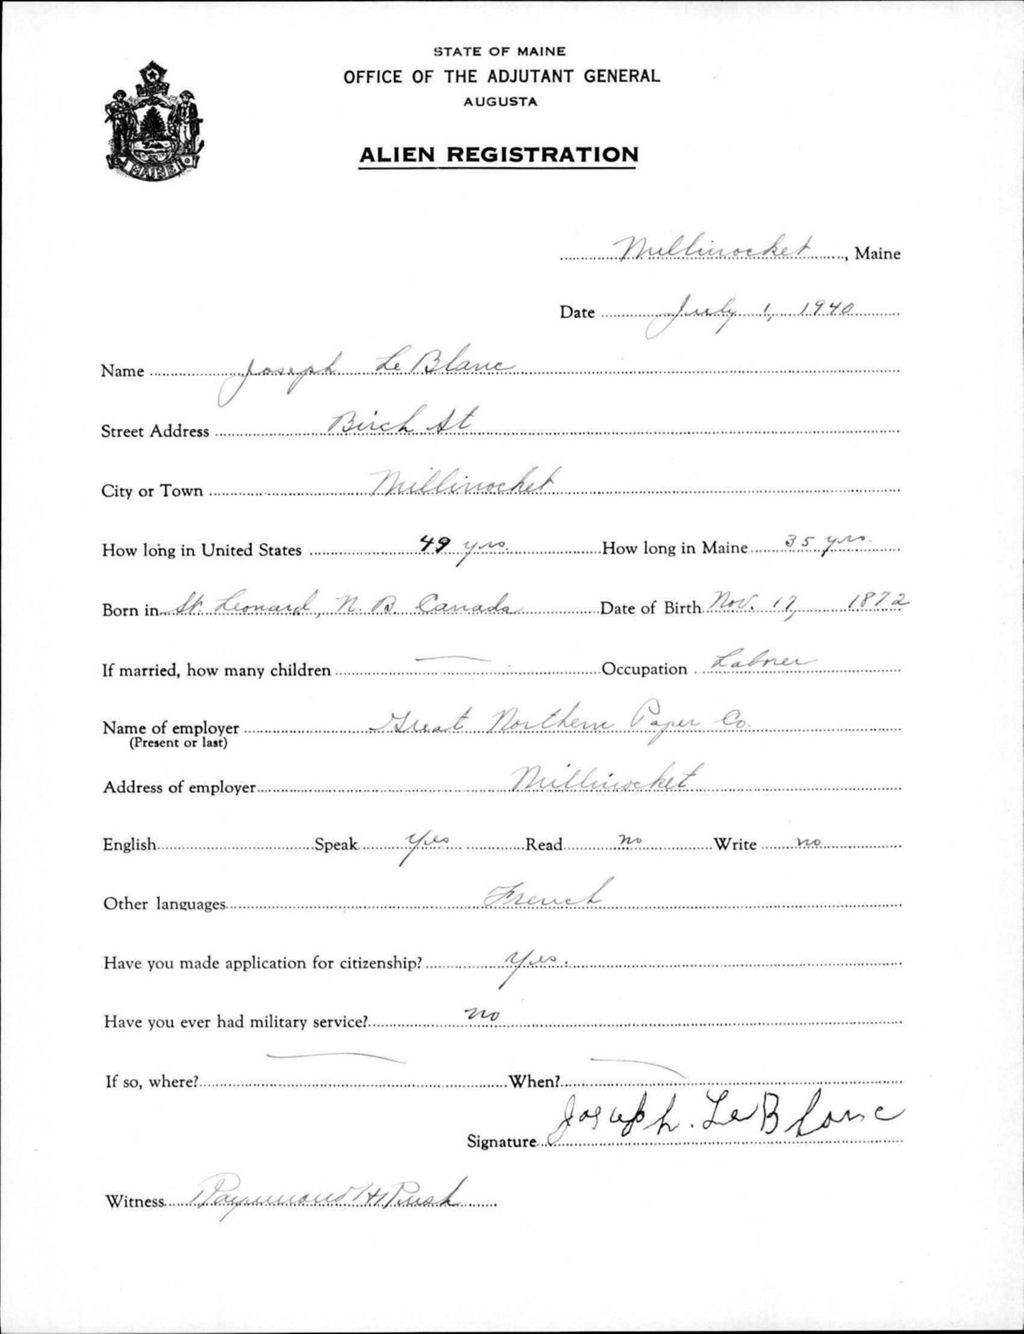 STATE OF MAINE
OFFICE OF THE ADJUTANT GENERAL
AUGUSTA
ALIEN REGISTRATION
MAINE
Millinocket, Maine
Date July 1, 1940
Name Joseph Le Blanc
Street Address Birch St
City or Town Millinocket
How long in United States 49 yrs. How long in Maine 35 yrs.
Born in St. Leonard, N. B. Canada Date of Birth Nov. 17, 1872
If married, how many children — Occupation Laborer
Name of employer Great Northern Paper Co.
(Present or last)
Address of employer Millinocket
English Speak Yes Read no Write no
Other languages French
Have you made application for citizenship? Yes.
Have you ever had military service? no
If so, where? — When? —
Signature Joseph. Le Blanc
Witness Raymond H Rush